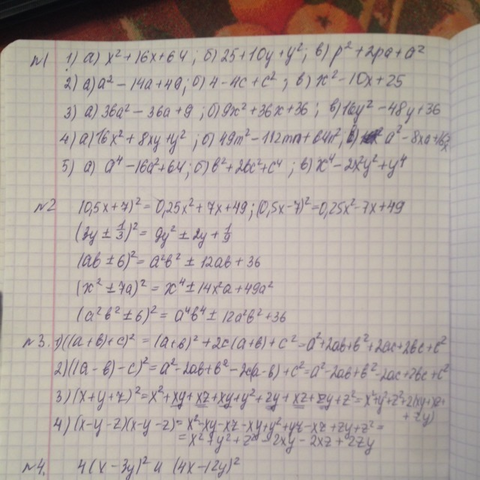 №1 1) а) x²+16x+64; б) 25+10y+y²; в) p²+2pa+a²
2) а) a²-14a+49; б) 4-4c+c²; в) x²-10x+25
3) а) 36a²-36a+9; б) 9x²+36x+36; в) 16y²-48y+36
4) а) 16x²+8xy+y²; б) 49m²-112mn+64n²; в) a²-8xa+16x
5) а) a⁴-16a²+64; б) b²+2bc²+c⁴; в) x⁴-2x²y²+y⁴
№2 (0,5x+7)²=0,25x²+7x+49; (0,5x-7)²=0,25x²-7x+49
(3y±1/3)²=9y²±2y+1/9
(ab±6)²=a²b²±12ab+36
(x²±7a)²=x⁴±14x²a+49a²
(a²b²±6)²=a⁴b⁴±12a²b²+36
№3. 1) ((a+b)+c)²=(a+b)²+2c(a+b)+c²=a²+2ab+b²+2ac+2bc+c²
2) ((a-b)-c)²=a²-2ab+b²-2c(a-b)+c²=a²-2ab+b²-2ac+2bc+c²
3) (x+y+z)²=x²+xy+xz+xy+y²+zy+xz+zy+z²=x²+y²+z²+2xy+2xz+
+zy)
4) (x-y-z)(x-y-z)=x²-xy-xz-xy+y²+yz-xz+zy+z²=
=x²+y²+z²-2xy-2xz+2zy
№4. 4(x-3y)² и (4x-12y)²